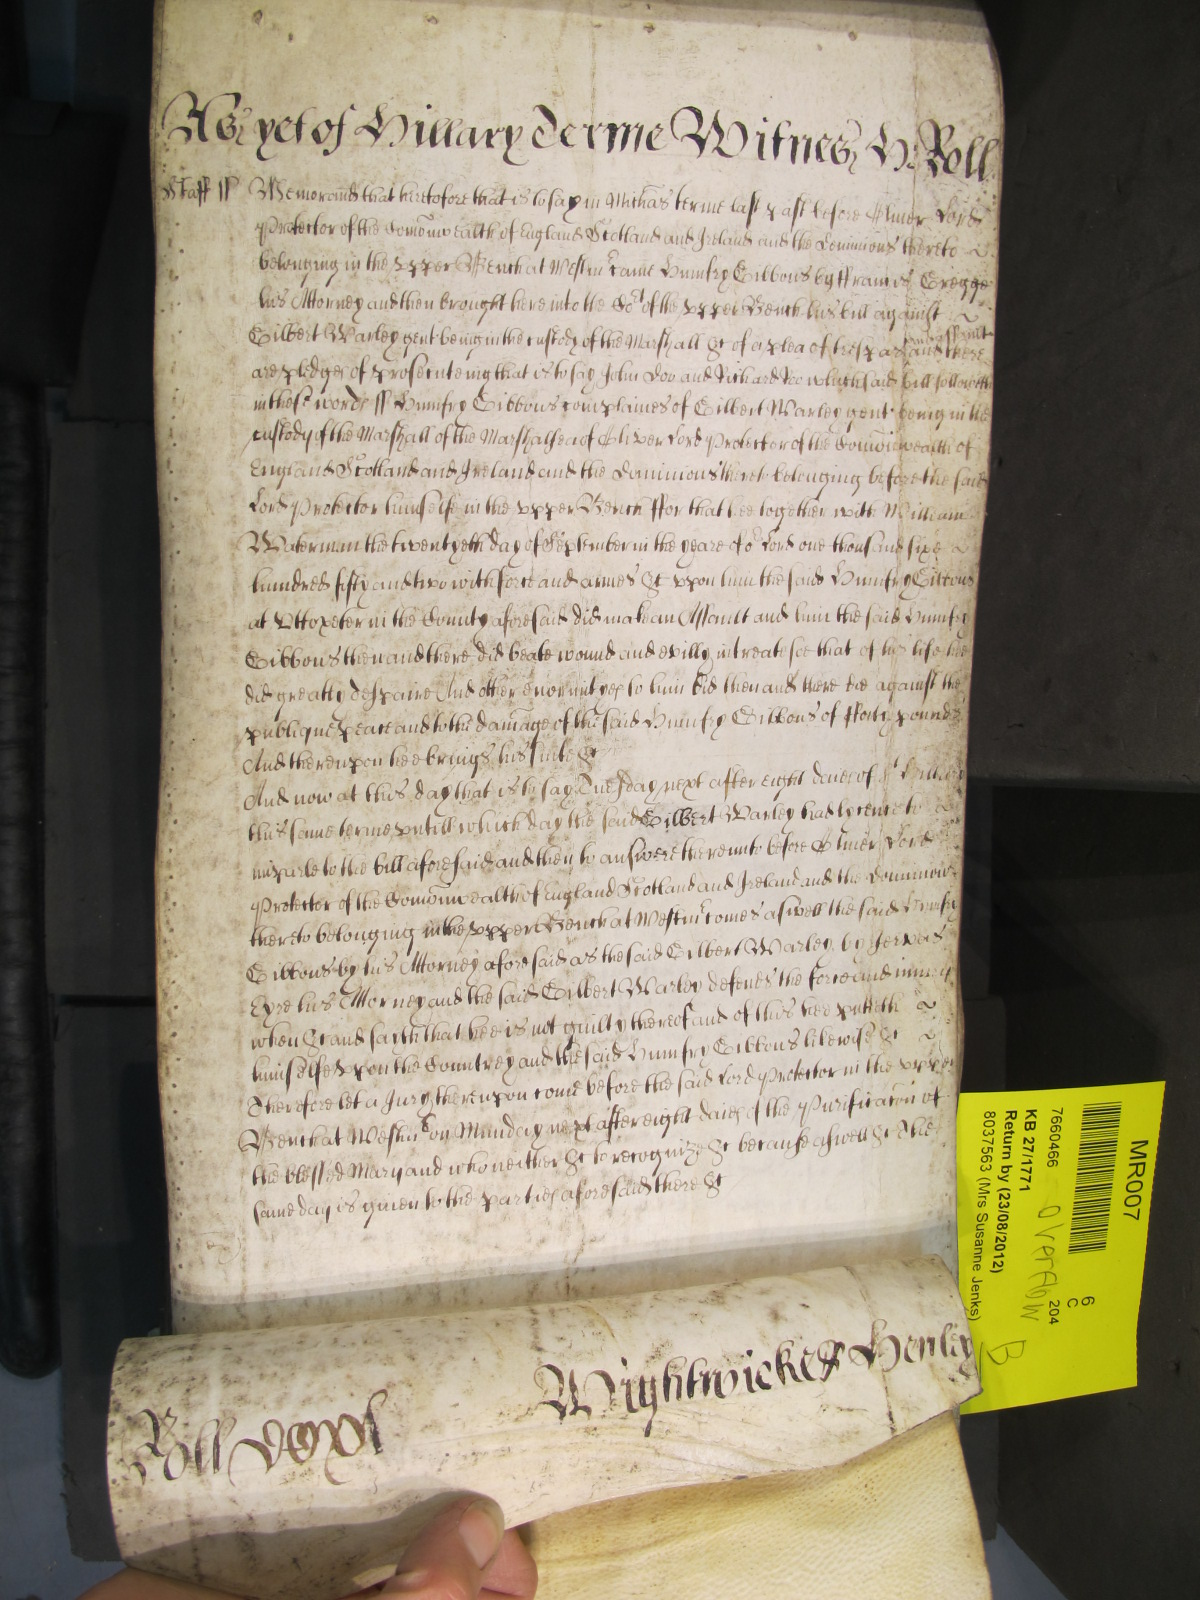 As yet of Hillary Terme Witnes H: Roll
Staff ss Memorand that heretofore that is to say in Michas terme last past before Oliver Lord
Protector of the Comonwealth of England Scotland and Ireland and the Dominions thereto
belonging in the upper Bench at Westmr came Humfry Gibbons by ffrancis Gregge
his Attorney and then brought here into the Cort of the upper Bench his bill against
Gilbert Warley gent being in the custody of the Marshall &c of a plea of trespas and assault and there
are pledges of prosecuteing that is to say John Doo and Richard Roo which said bill followeth
in these words ss Humfry Gibbons complaines of Gilbert Warley gent being in the
custody of the Marshall of the Marshalsea of Oliver Lord Protector of the Comonwealth of
England Scotland and Ireland and the Dominions thereto belonging before the said
Lord Protector himselfe in the upper Bench ffor that hee together with William
Waterman the twentyeth day of September in the yeare of or Lord one thousand sixe
hundred fifty and two with force and armes &c upon him the said Humfry Gibbons
at Uttoxeter in the County aforesaid did make an Assault and him the said Humfry
Gibbons then and there did beate wound and evilly intreate soe that of his life hee
did greatly despaire And other enormityes to him did then and there doe against the
publique peace and to the damage of the said Humfry Gibbons of fforty pounds
And thereupon hee brings his suite &c
And now at this day that is to say Tuesday next after eight daies of St Hillary
this same terme untill which day the said Gilbert Warley had lycence to
imparle to the bill aforesaid and then to answere thereunto before Oliver Lord
Protector of the Comonwealth of England Scotland and Ireland and the Dominions
thereto belonging in the upper Bench at Westmr comes aswell the said Humfry
Gibbons by his Attorney aforesaid as the said Gilbert Warley by Jervas
Eyre his Attorney and the said Gilbert Warley defends the force and iniury
when &c and sayth that hee is not guilty thereof and of this hee putteth
himselfe upon the Countrey and the said Humfry Gibbons likewise &c
Therefore let a Jury thereupon come before the said Lord Protector in the upper
Bench at Westmr on Munday next after eight daies of the Purificacon of
the blessed Mary and who neither &c to recognize &c because aswell &c The
same day is given to the parties aforesaid there &c
Wightwicke ss Henley
Roll
MR007
6
C
204
7660466
Overflow
B
KB 27/1771
Return by (23/08/2012)
8037563 (Mrs Susanne Jenks)